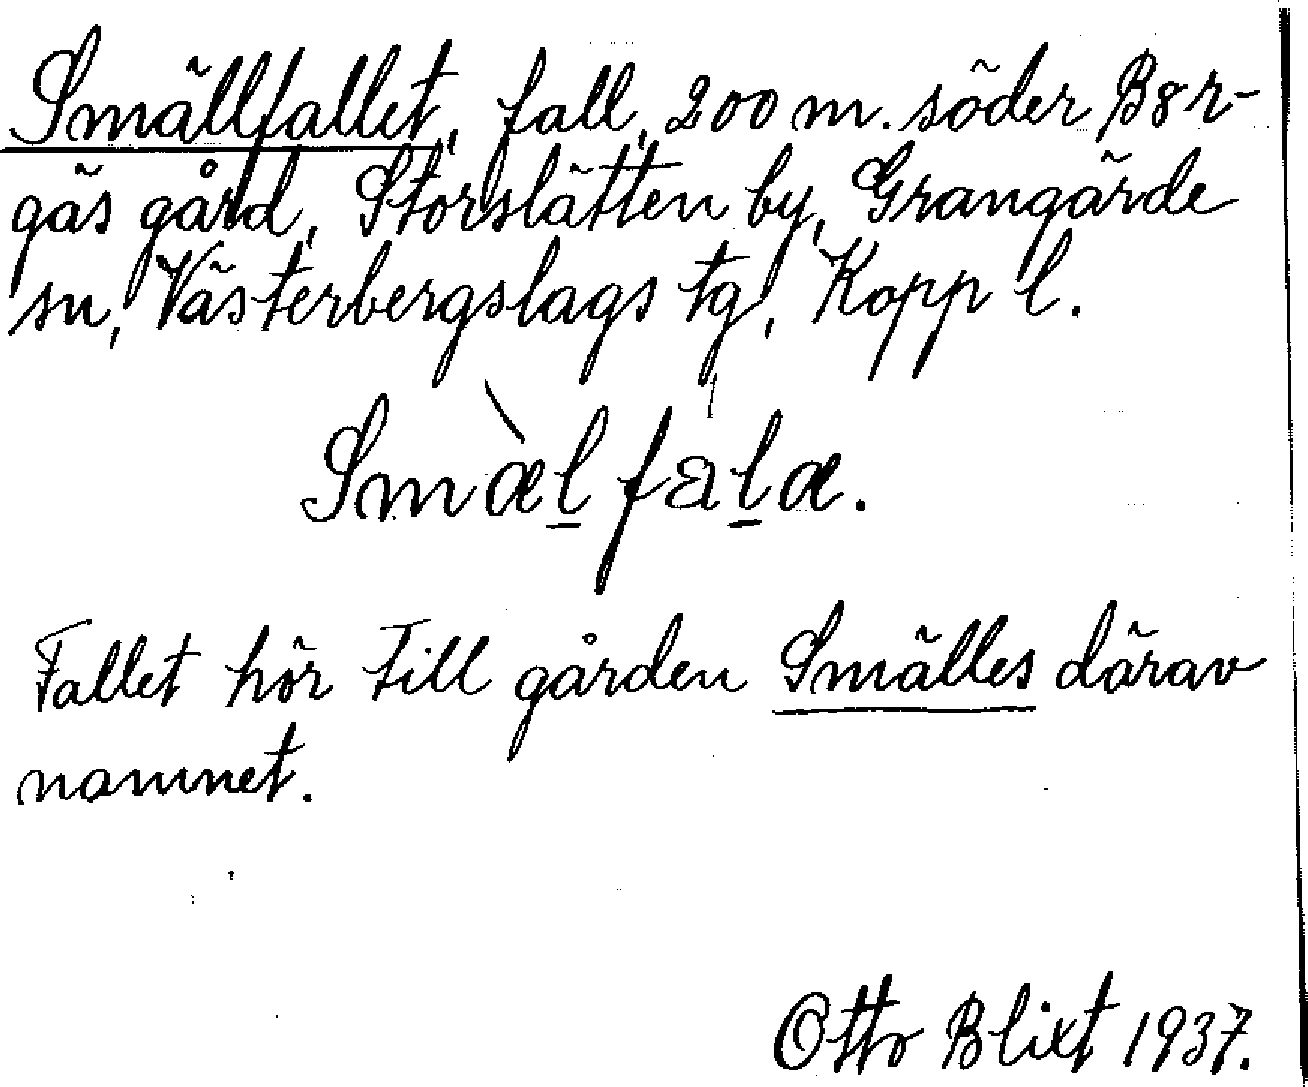 Smällfallet, fall, 200 m. söder B8r-
gäs gård, Storslätten by, Grangärde
sn, Västerbergslags tg, Kopp l.
Smæ̀l̠fàl̠æ.
Fallet hör till gården Smälles därav
namnet.
Otto Blixt 1937.